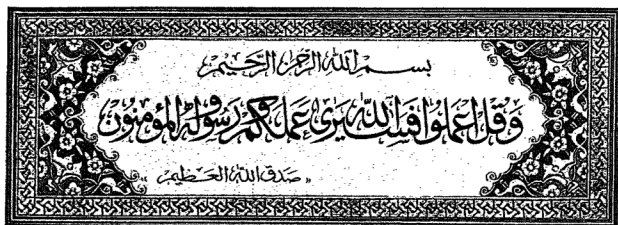 بسم الله الرحمن الرحيم
وقل اعملوا فسيرى الله عملكم ورسوله والمؤمنون
« صدق الله العظيم »